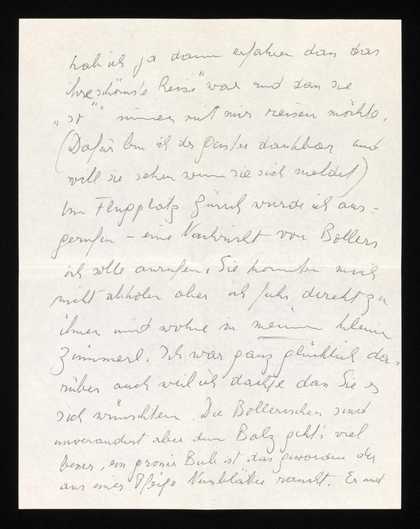 hab ich ja dann erfahren dass das
ihre schönste Reise" war und dass sie
"so" immer mit mir reisen möchte.
(Dafür bin ich der dankbar und
will sie sehen wenn sie sich meldet)
Am Flugplatz Zürich wurde ich aus-
gerufen – eine Nachricht von Bollers
ich solle anrufen. Sie konnten mich
nicht abholen aber ich fuhr direkt zu
ihnen und wohne in meinem kleinen
Zimmerl. Ich war ganz glücklich da-
rüber auch weil ich dachte dass Sie es
sich wünschten. Die Bollerischen sind
unverändert aber dem Balz geht's viel
besser, ein Bub ist das geworden der
aus einer Pfeife raucht. Er und